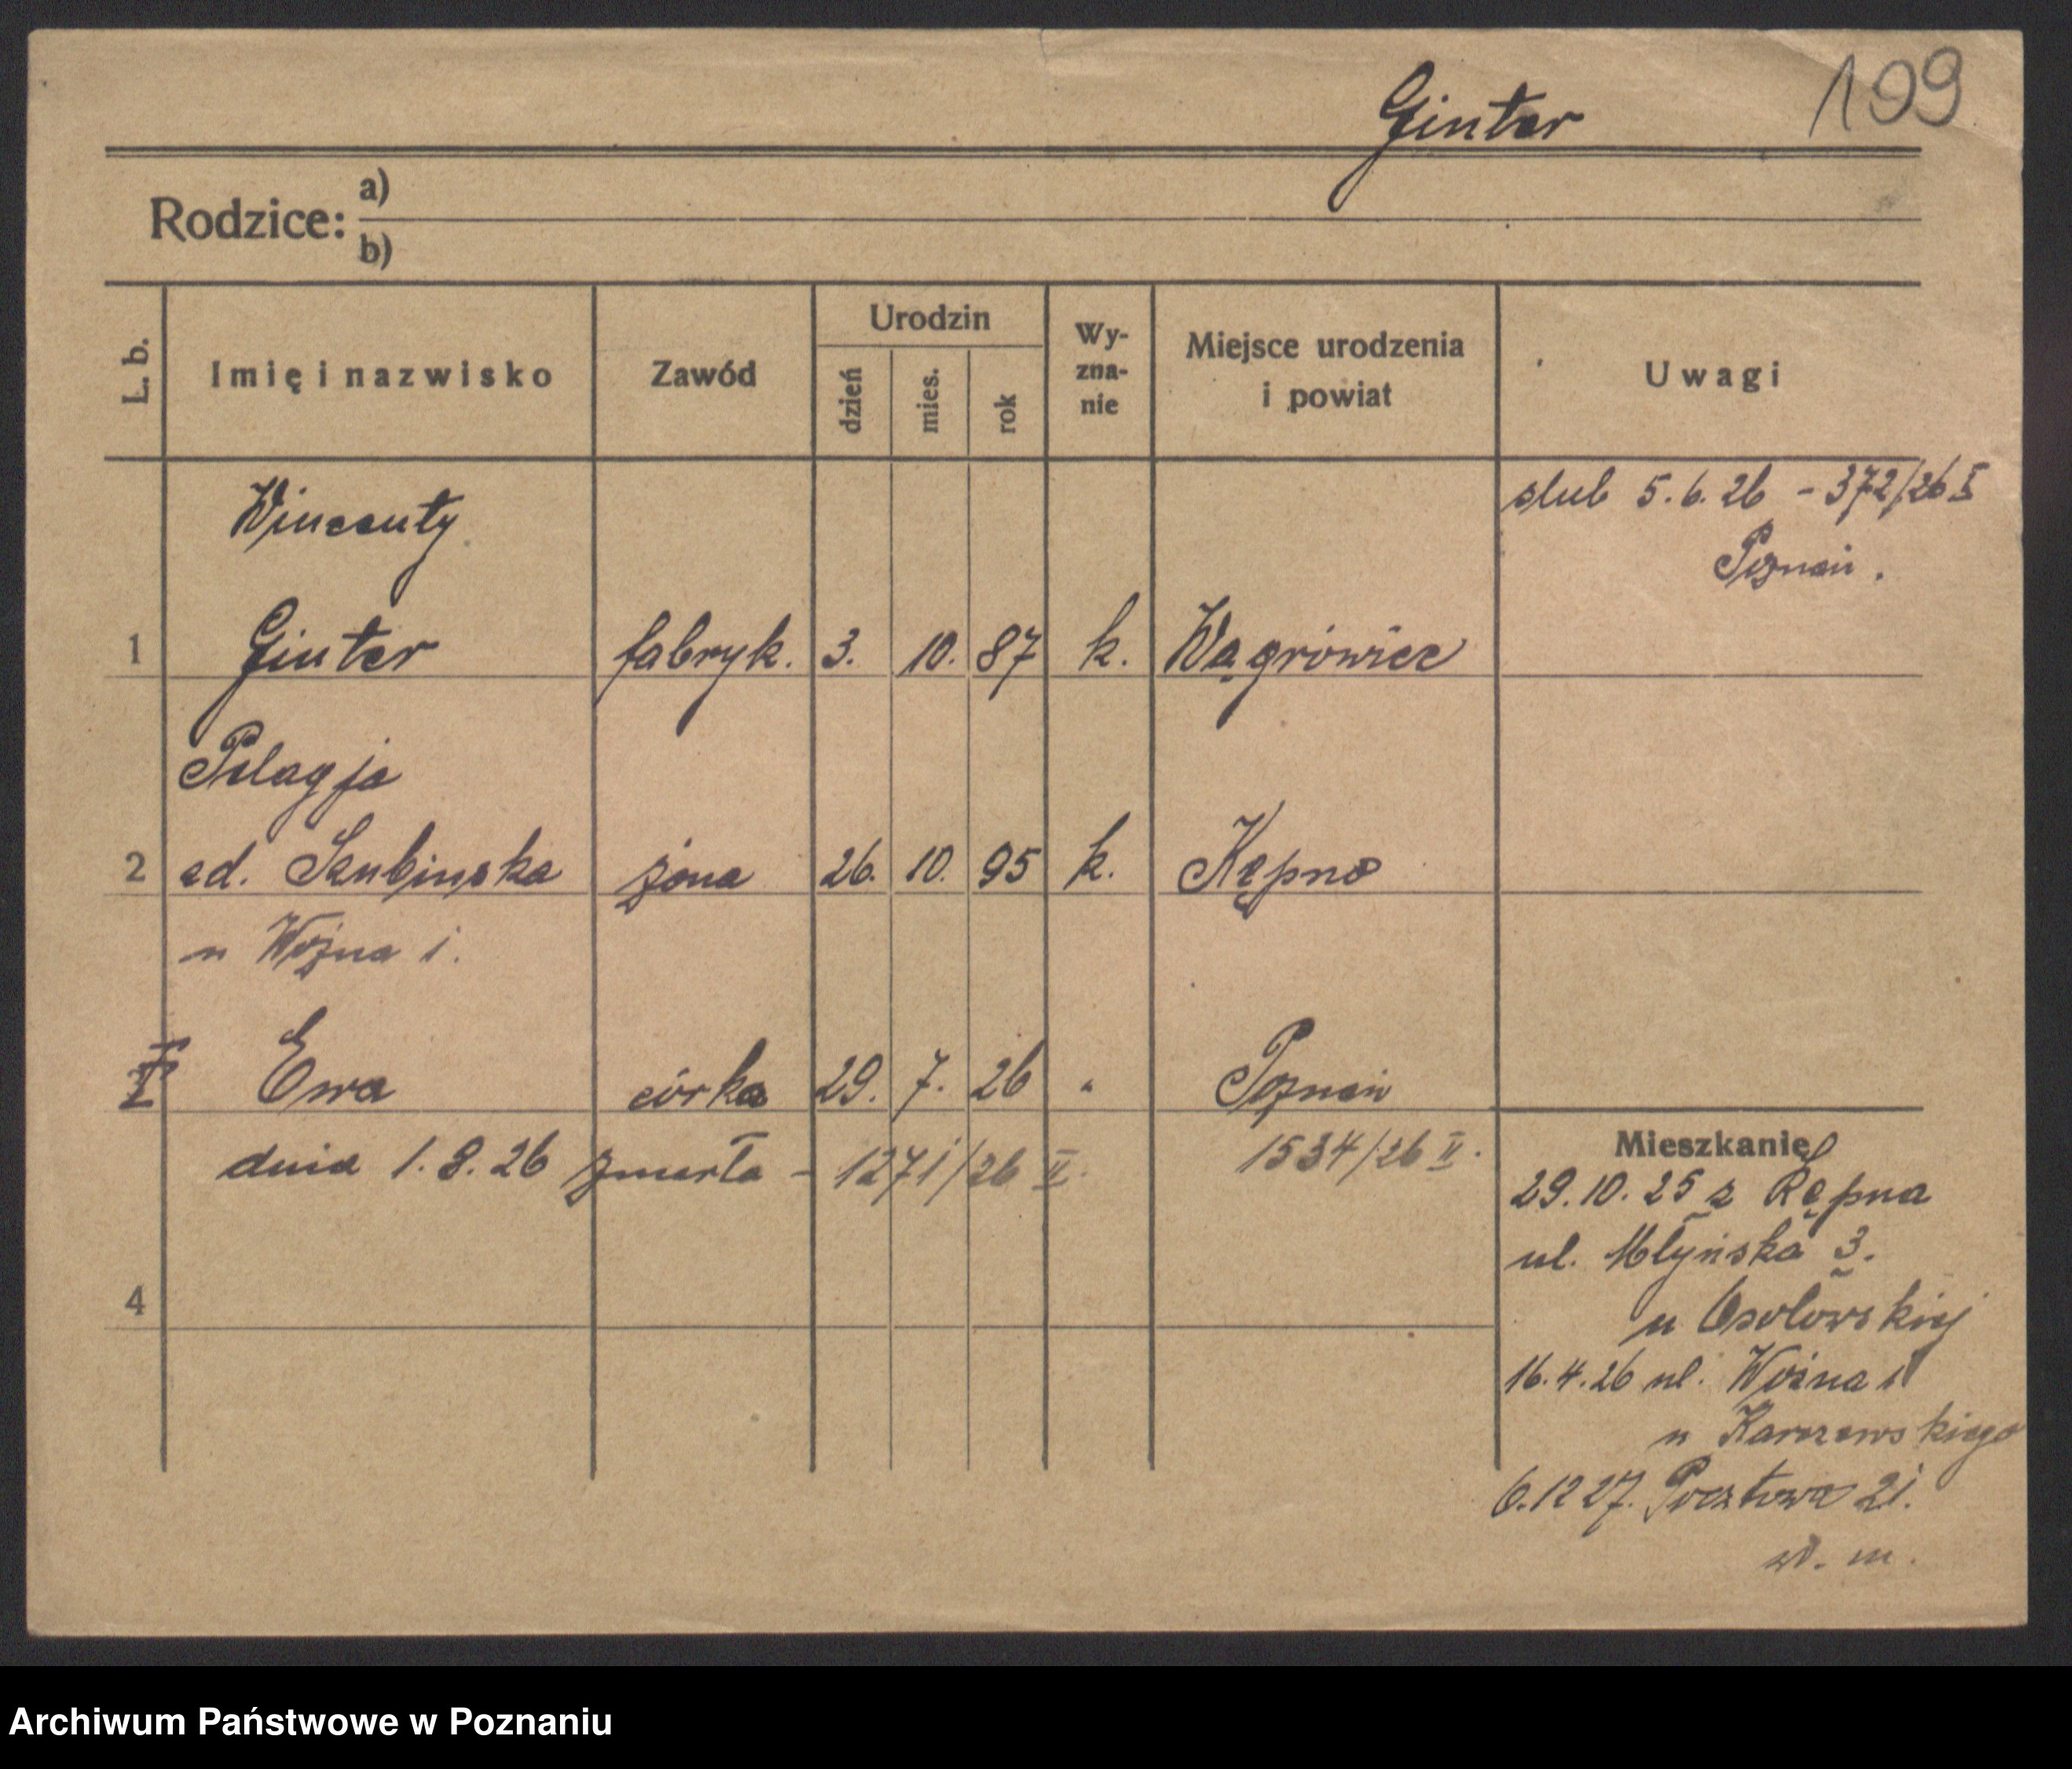 Ginter 199
Rodzice: a)
b)
L. b. Imię i nazwisko Zawód Urodzin dzień mies. rok Wy-zna-nie Miejsce urodzenia i powiat Uwagi
ślub 5.6.26 - 372/26 I
Poznań.
Wincenty
1 Ginter fabryk. 3. 10. 87 k. Wągrówiec
Pelagja
2 Szubinska żona 26. 10. 95 k. Kępno
u Woźna 1.
Ewa córka 29. 7. 26 " Poznań
dnia 1.8.26 zmarła - 1271/26 II. 1534/26 II.
4
Mieszkanie
29.10.25 z Kępna
ul. Młyńska 3.
u
16.4.26 ul. Woźna 1
u Karczewskiego
6.12 27. Pocztowa 21.
Archiwum Państwowe w Poznaniu